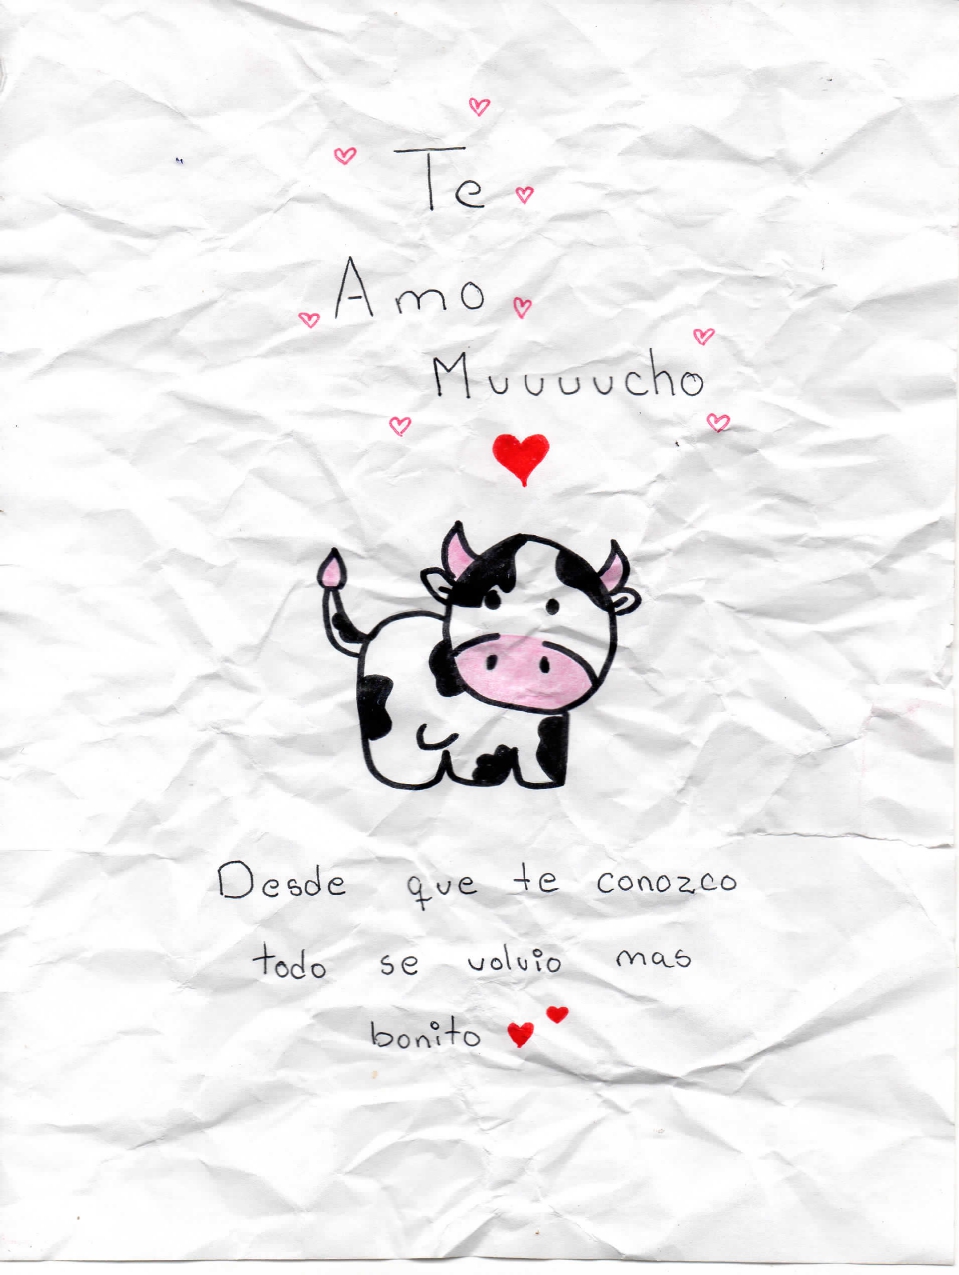 Te
Amo
Muuuucho
Desde que te conozco
todo se volvio mas
bonito